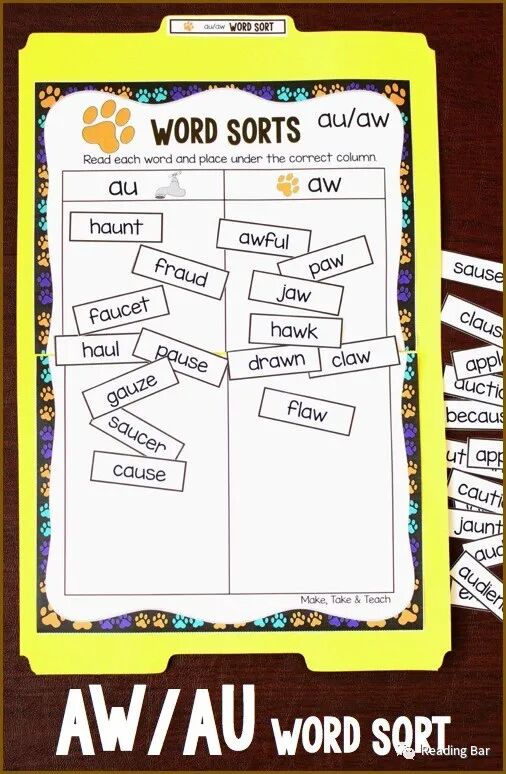 au/aw WORD SORT
WORD SORTS au/aw
Read each word and place under the correct column.
au
aw
haunt
fraud
faucet
haul
pause
gauze
saucer
cause
awful
paw
jaw
hawk
drawn
claw
flaw
sause
claus
auctio
becaus
app
cauti
jaunt
aud
audien
Make, Take & Teach
AW/AU WORD SORT
Reading Bar